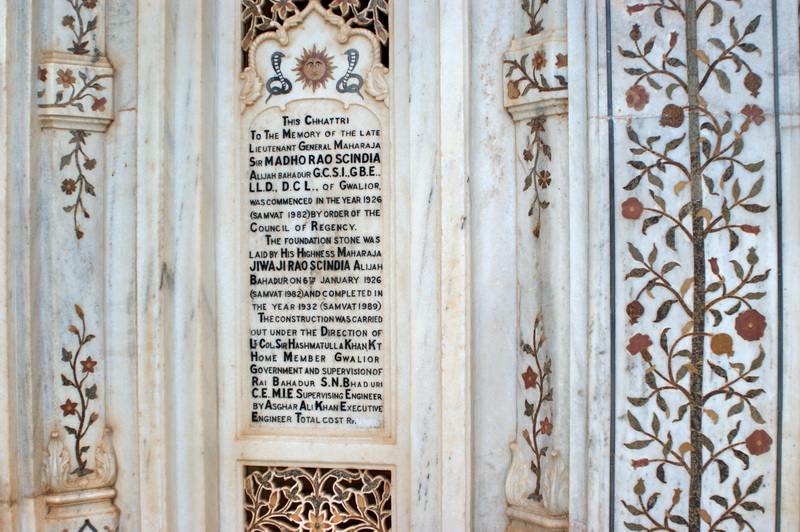 This Chhattri
To The Memory of the late
Lieutenant General Maharaja
Sir MADHO RAO SCINDIA
Alijah Bahadur G.C.S.I., G.B.E.,
LL.D., D.C L., of Gwalior,
was commenced in the year 1926
(Samvat 1982) by order of the
Council of Regency.
The foundation stone was
laid by His Highness Maharaja
JIWAJI RAO SCINDIA Alijah
Bahadur on 6th January 1926
(Samvat 1982) and completed in
the year 1932 (Samvat 1989)
The construction was carried
out under the Direction of
Lt. Col. Sir Hashmatulla Khan, Kt
Home Member Gwalior
Government and supervision of
Rai Bahadur S.N. Bhaduri
C.E. M.I.E Supervising Engineer
by Asghar Ali Khan Executive
Engineer Total cost Rs.